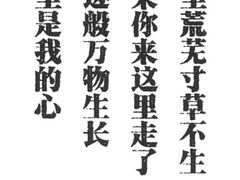 里荒芜寸草不生
来你来这里走了
迹般万物生长
里是我的心